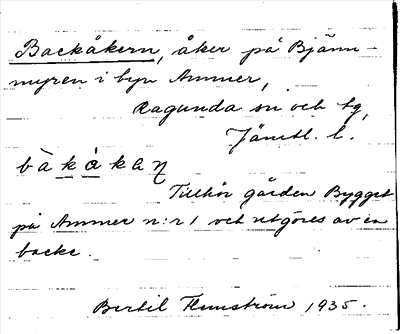 Backåkern, åker på Bjänn-
myren i byn Ammer,
Ragunda sn och tg,
Jämtl. l.
bàkàkaɳ
Tillhör gården Bygget
på Ammer n:r 1 och utgöres av en
backe.
Bertil Flemström 1935.